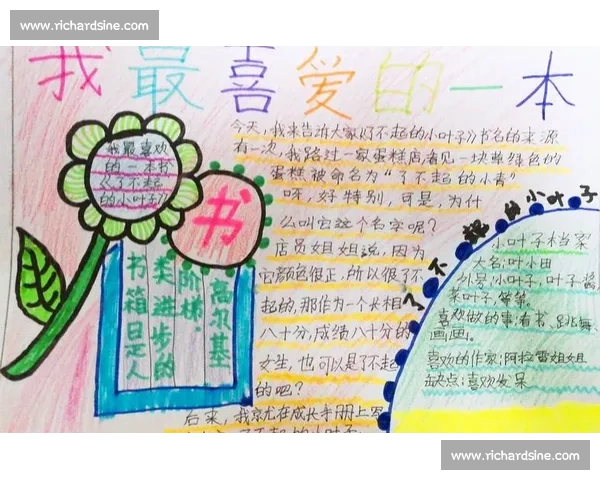 www.richardsine.com
我最喜爱的一本
书
我最喜欢
的一本书
《了不起
的小叶子》
书籍是人
类进步的
阶梯
高尔基
今天,我来告诉大家《了不起的小叶子》书名的来源
有一次,我路过一家蛋糕店,看见一块草绿色的
蛋糕被命名为“了不起的小青”
呀,好特别,可是,为什
么叫它这个名字呢?
店员姐姐说,因为
它颜色很正,所以很了不
起的,那作为一个长相
八十分,成绩八十分的
女生,也可以是了不起
的吧?
后来,我就在成长手册上写
了不起的小叶子
了不起的小叶子
小叶子档案
大名:叶小田
外号:小叶子,叶子酱
菜叶子,等等。
喜欢做的事:看书、跳舞
画画。
喜欢的作家:阿拉雷姐姐
缺点:喜欢发呆
www.richardsine.com